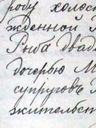 роду холост
жденной М
Рыба двад
дочерью М
супругов
жительст